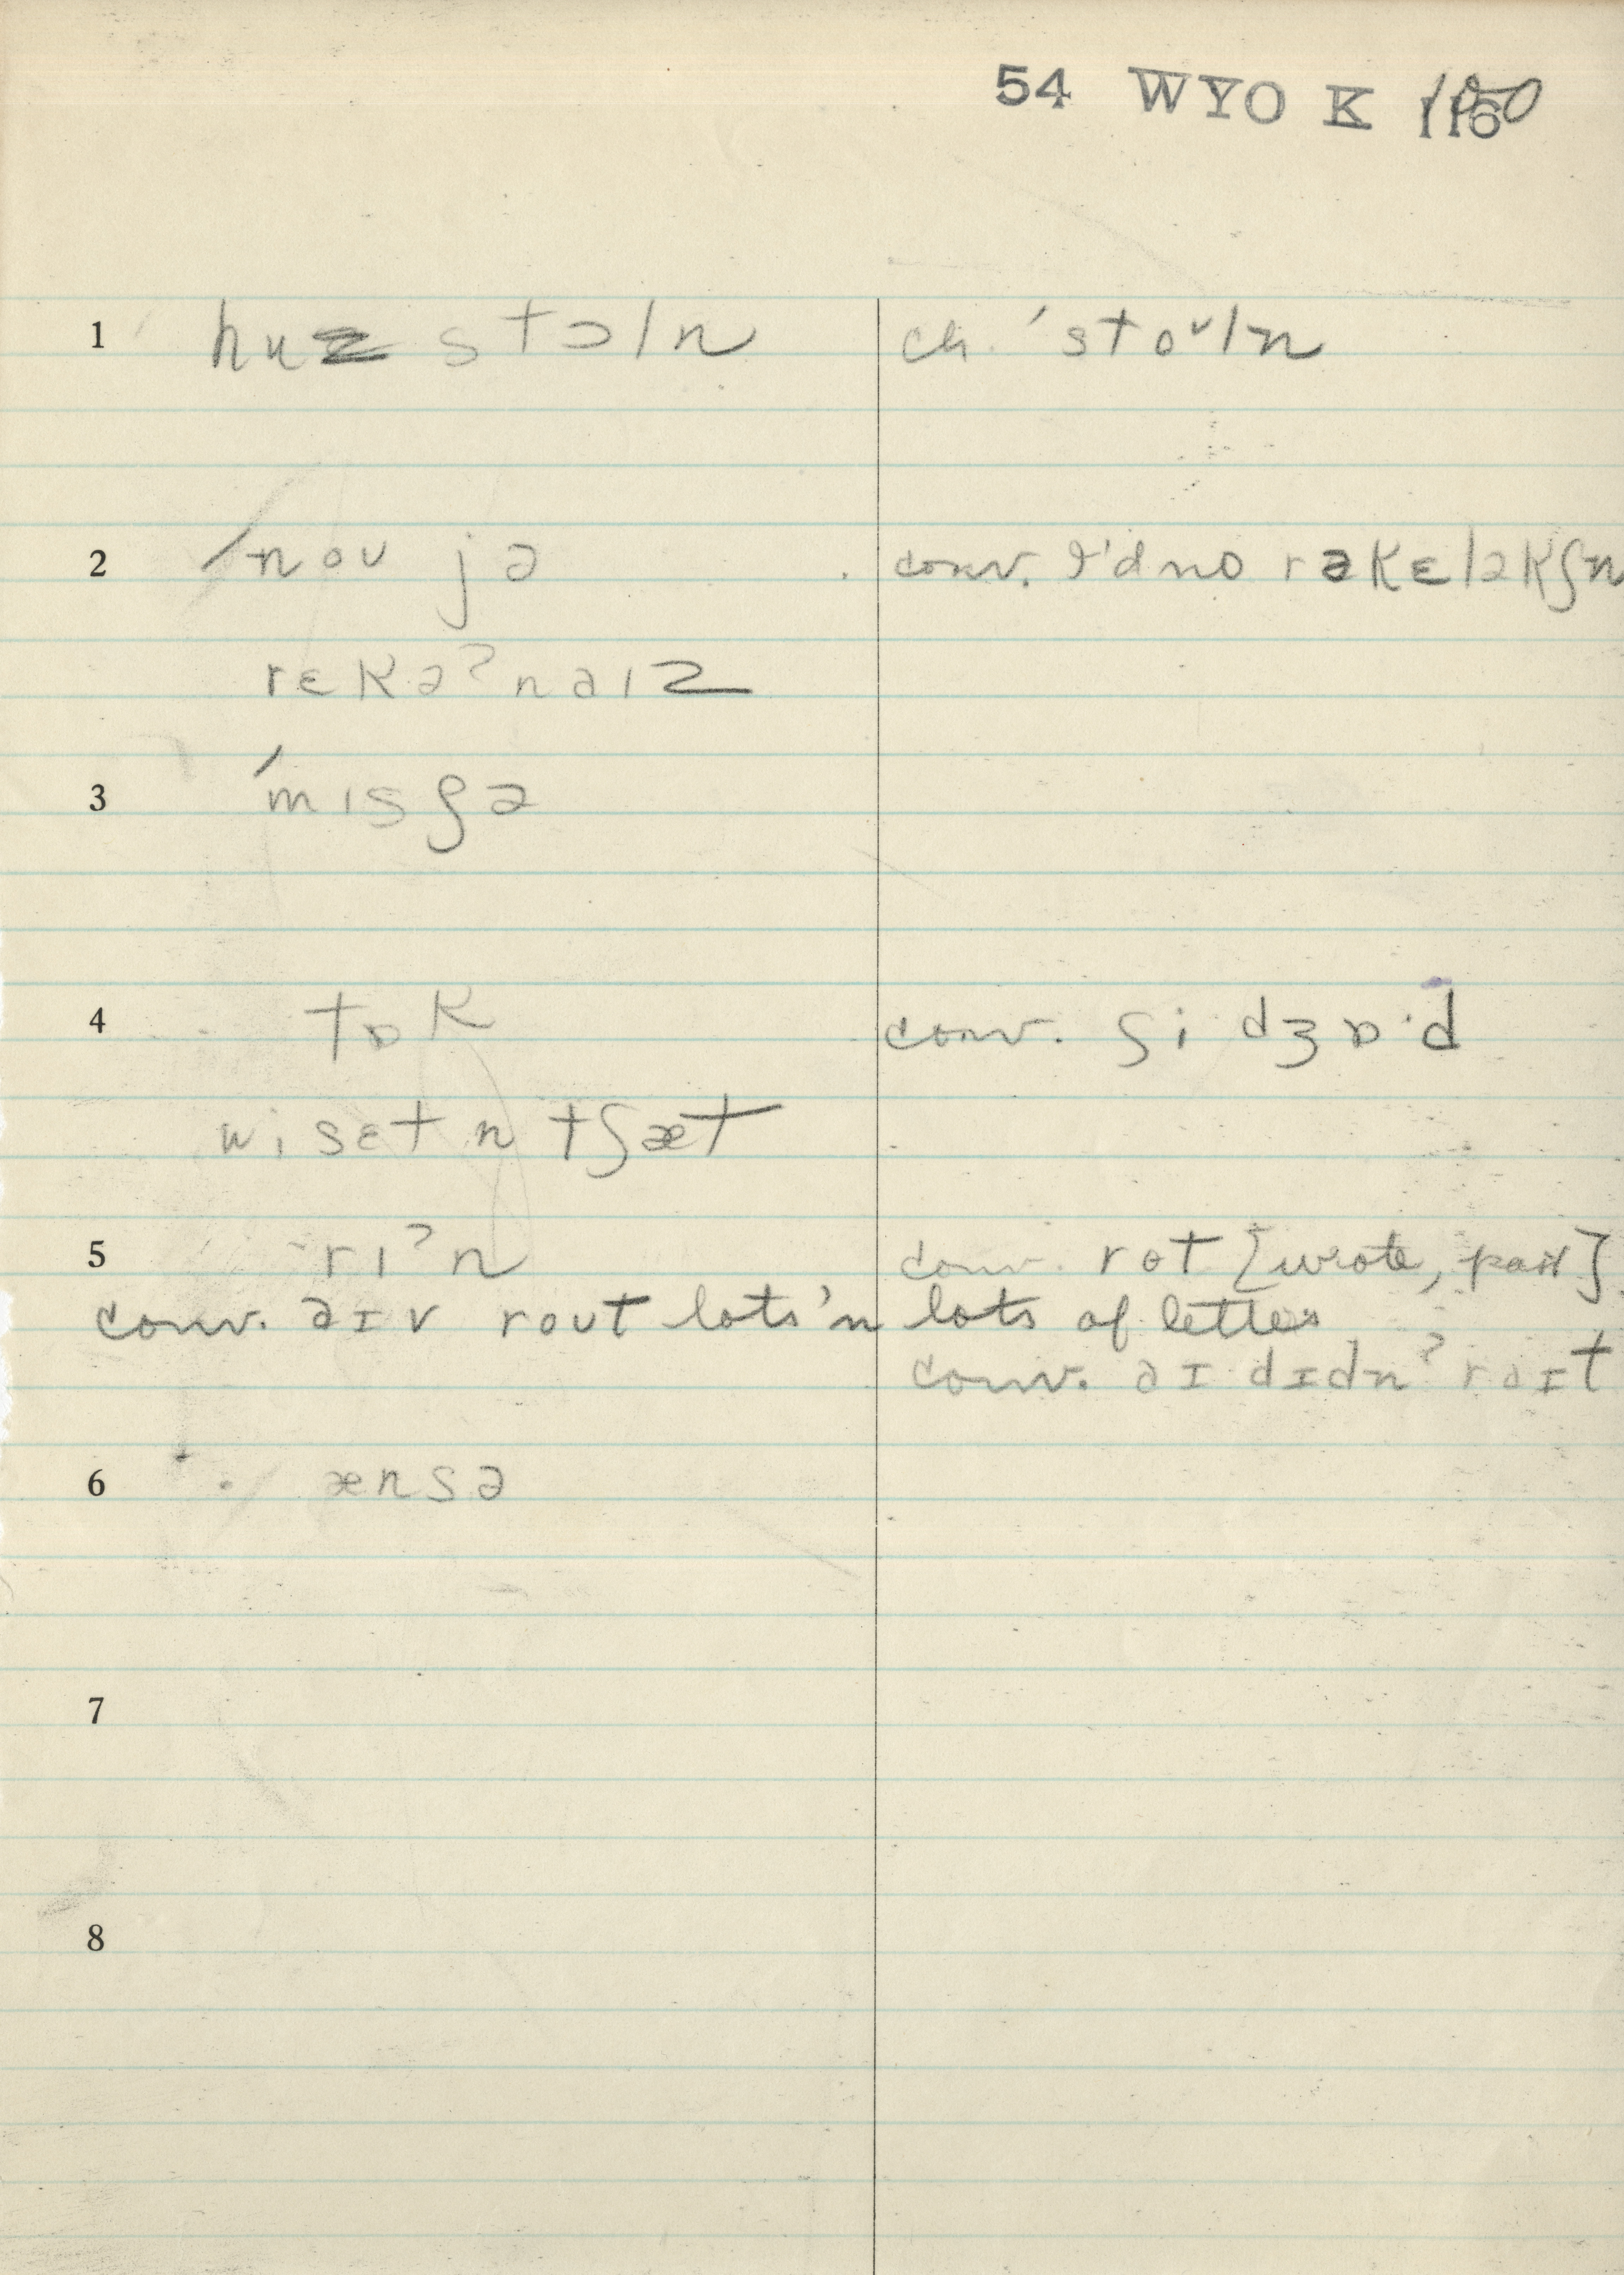 54 WYO K
1 huz stɔln ch. 'stoᵘln
2 'nou jə conv. I'd no rəkɛləkʃn
rɛkəˀnaız
3 'mısʃə
4 tɒk conv. ʃi dʒɒ·d
wi sɛt n tʃæt
5 rıˀn conv. rot [wrote, past]
conv. aɪv rout lots'n lots of letters
conv. aɪ dɪdnˀ raɪt
6 ænsə
7
8